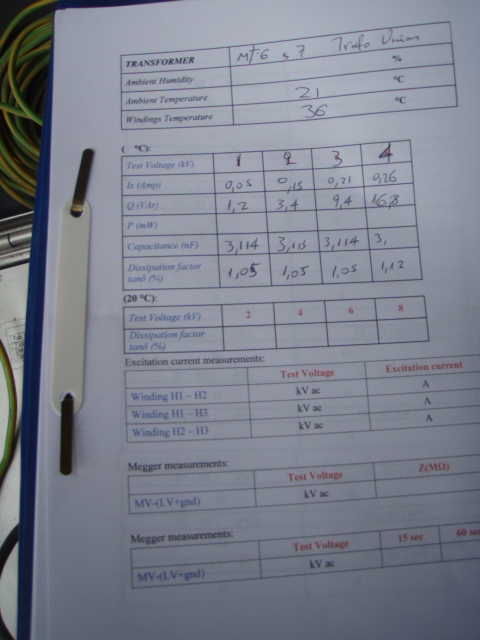 TRANSFORMER MT6 s 7 Trafo Union
Ambient Humidity %
Ambient Temperature 21 °C
Windings Temperature 36 °C
( °C):
Test Voltage (kV) 1 2 3 4
Ix (Amp) 0,05 0,15 0,21 0,26
Q (VAr) 1,2 3,4 9,4 16,8
P (mW)
Capacitance (nF) 3,114 3,113 3,114 3,
Dissipation factor
tanδ (%) 1,05 1,05 1,05 1,12
(20 °C):
Test Voltage (kV) 2 4 6 8
Dissipation factor
tanδ (%)
Excitation current measurements:
Test Voltage Excitation current
Winding H1 – H2 kV ac A
Winding H1 – H3 kV ac A
Winding H2 – H3 kV ac A
Megger measurements:
Test Voltage Z(MΩ)
MV-(LV+gnd) kV ac
Megger measurements:
Test Voltage 15 sec 60 sec
MV-(LV+gnd) kV ac